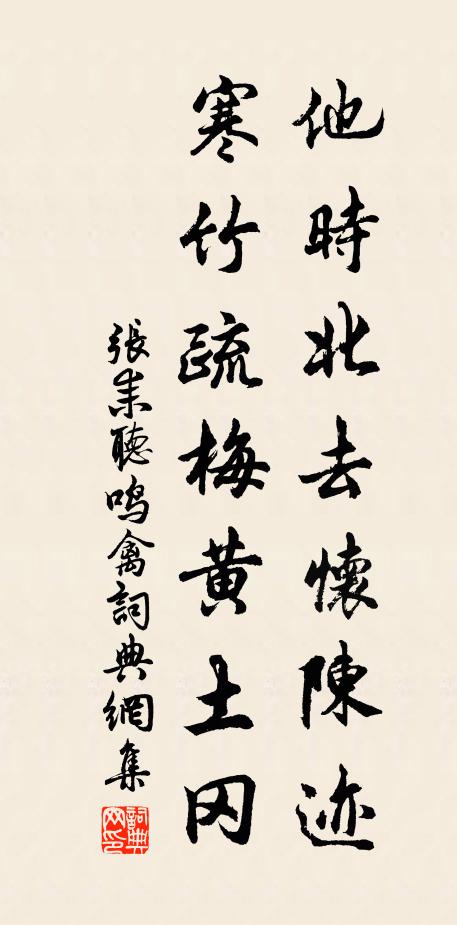 他時北去懷陳迹
寒竹疏梅黃土冈
張耒聽鳴禽詞典網集
詞典网印